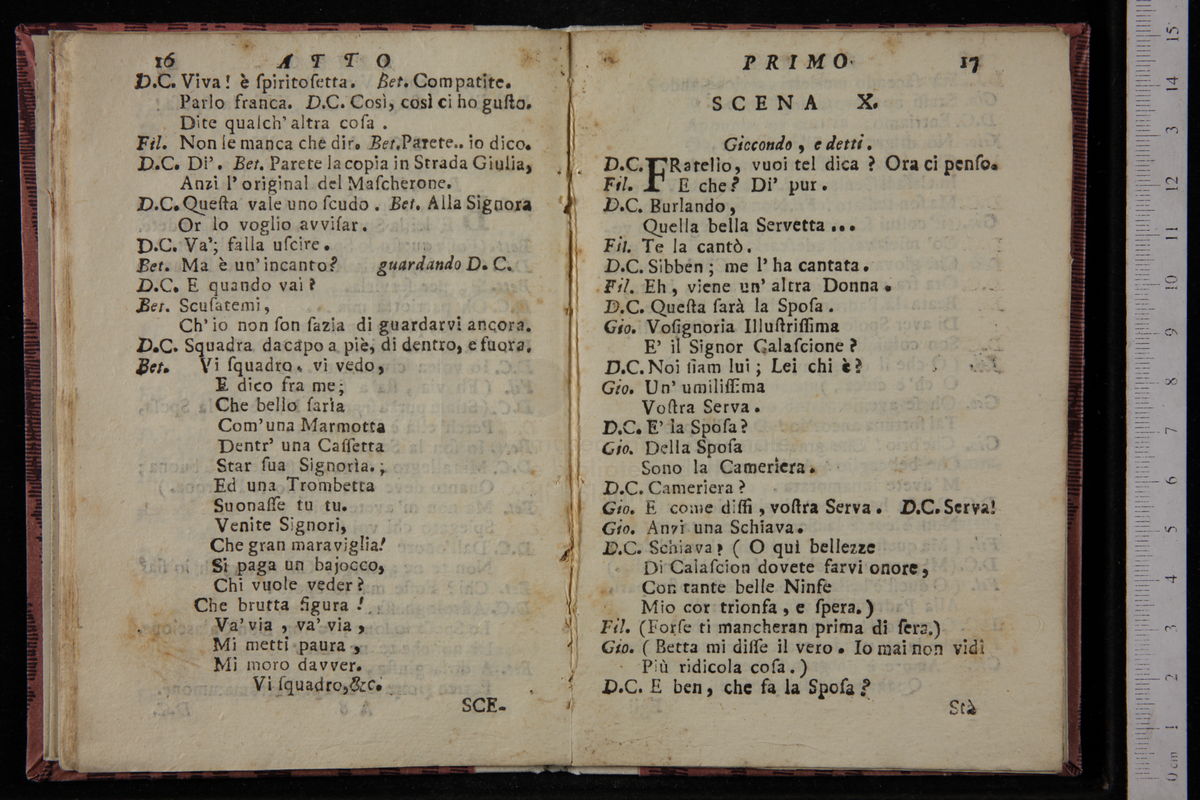 16 ATTO
D.C. Viva! è ſpiritoſetta. Bet. Compatite.
Parlo franca. D.C. Così, così ci ho guſto.
Dite qualch' altra coſa .
Fil. Non le manca che dir. Bet. Parete.. io dico.
D.C. Di'. Bet. Parete la copia in Strada Giulia,
Anzi l' original del Maſcherone.
D.C. Queſta vale uno ſcudo . Bet. Alla Signora
Or lo voglio avviſar.
D.C. Va'; falla uſcire.
Bet. Ma è un' incanto? guardando D. C.
D.C. E quando vai?
Bet. Scuſatemi,
Ch' io non ſon ſazia di guardarvi ancora.
D.C. Squadra da capo a piè, di dentro, e fuora.
Bet. Vi ſquadro, vi vedo,
E dico fra me;
Che bello ſaria
Com' una Marmotta
Dentr' una Caſſetta
Star ſua Signoria.;
Ed una Trombetta
Suonaſſe tu tu.
Venite Signori,
Che gran maraviglia!
Si paga un bajocco,
Chi vuole veder?
Che brutta figura !
Va' via , va' via ,
Mi metti paura ,
Mi moro davver.
Vi ſquadro,&c.
SCE-
PRIMO. 17
SCENA X.
Giccondo , e detti .
D.C. FRatello, vuoi tel dica ? Ora ci penſo.
Fil. E che? Di' pur .
D.C. Burlando,
Quella bella Servetta ...
Fil. Te la cantò .
D.C. Sibben ; me l' ha cantata.
Fil. Eh , viene un' altra Donna .
D.C. Queſta ſarà la Spoſa .
Gio. Voſignoria Illuſtriſſima
E' il Signor Calaſcione ?
D.C. Noi ſiam lui ; Lei chi è?
Gio. Un' umiliſſima
Voſtra Serva .
D.C. E' la Spoſa?
Gio. Della Spoſa
Sono la Cameriera.
D.C. Cameriera ?
Gio. E come diſſi , voſtra Serva . D.C. Serva!
Gio. Anzi una Schiava.
D.C. Schiava? ( O quì bellezze
Di Calaſcion dovete farvi onore,
Con tante belle Ninfe
Mio cor trionfa , e ſpera.)
Fil. (Forſe ti mancheran prima di ſera.)
Gio. ( Betta mi diſſe il vero . Io mai non vidi
Più ridicola coſa .)
D.C. E ben , che fa la Spoſa ?
Stà
0 cm 1 2 3 4 5 6 7 8 9 10 11 12 13 14 15